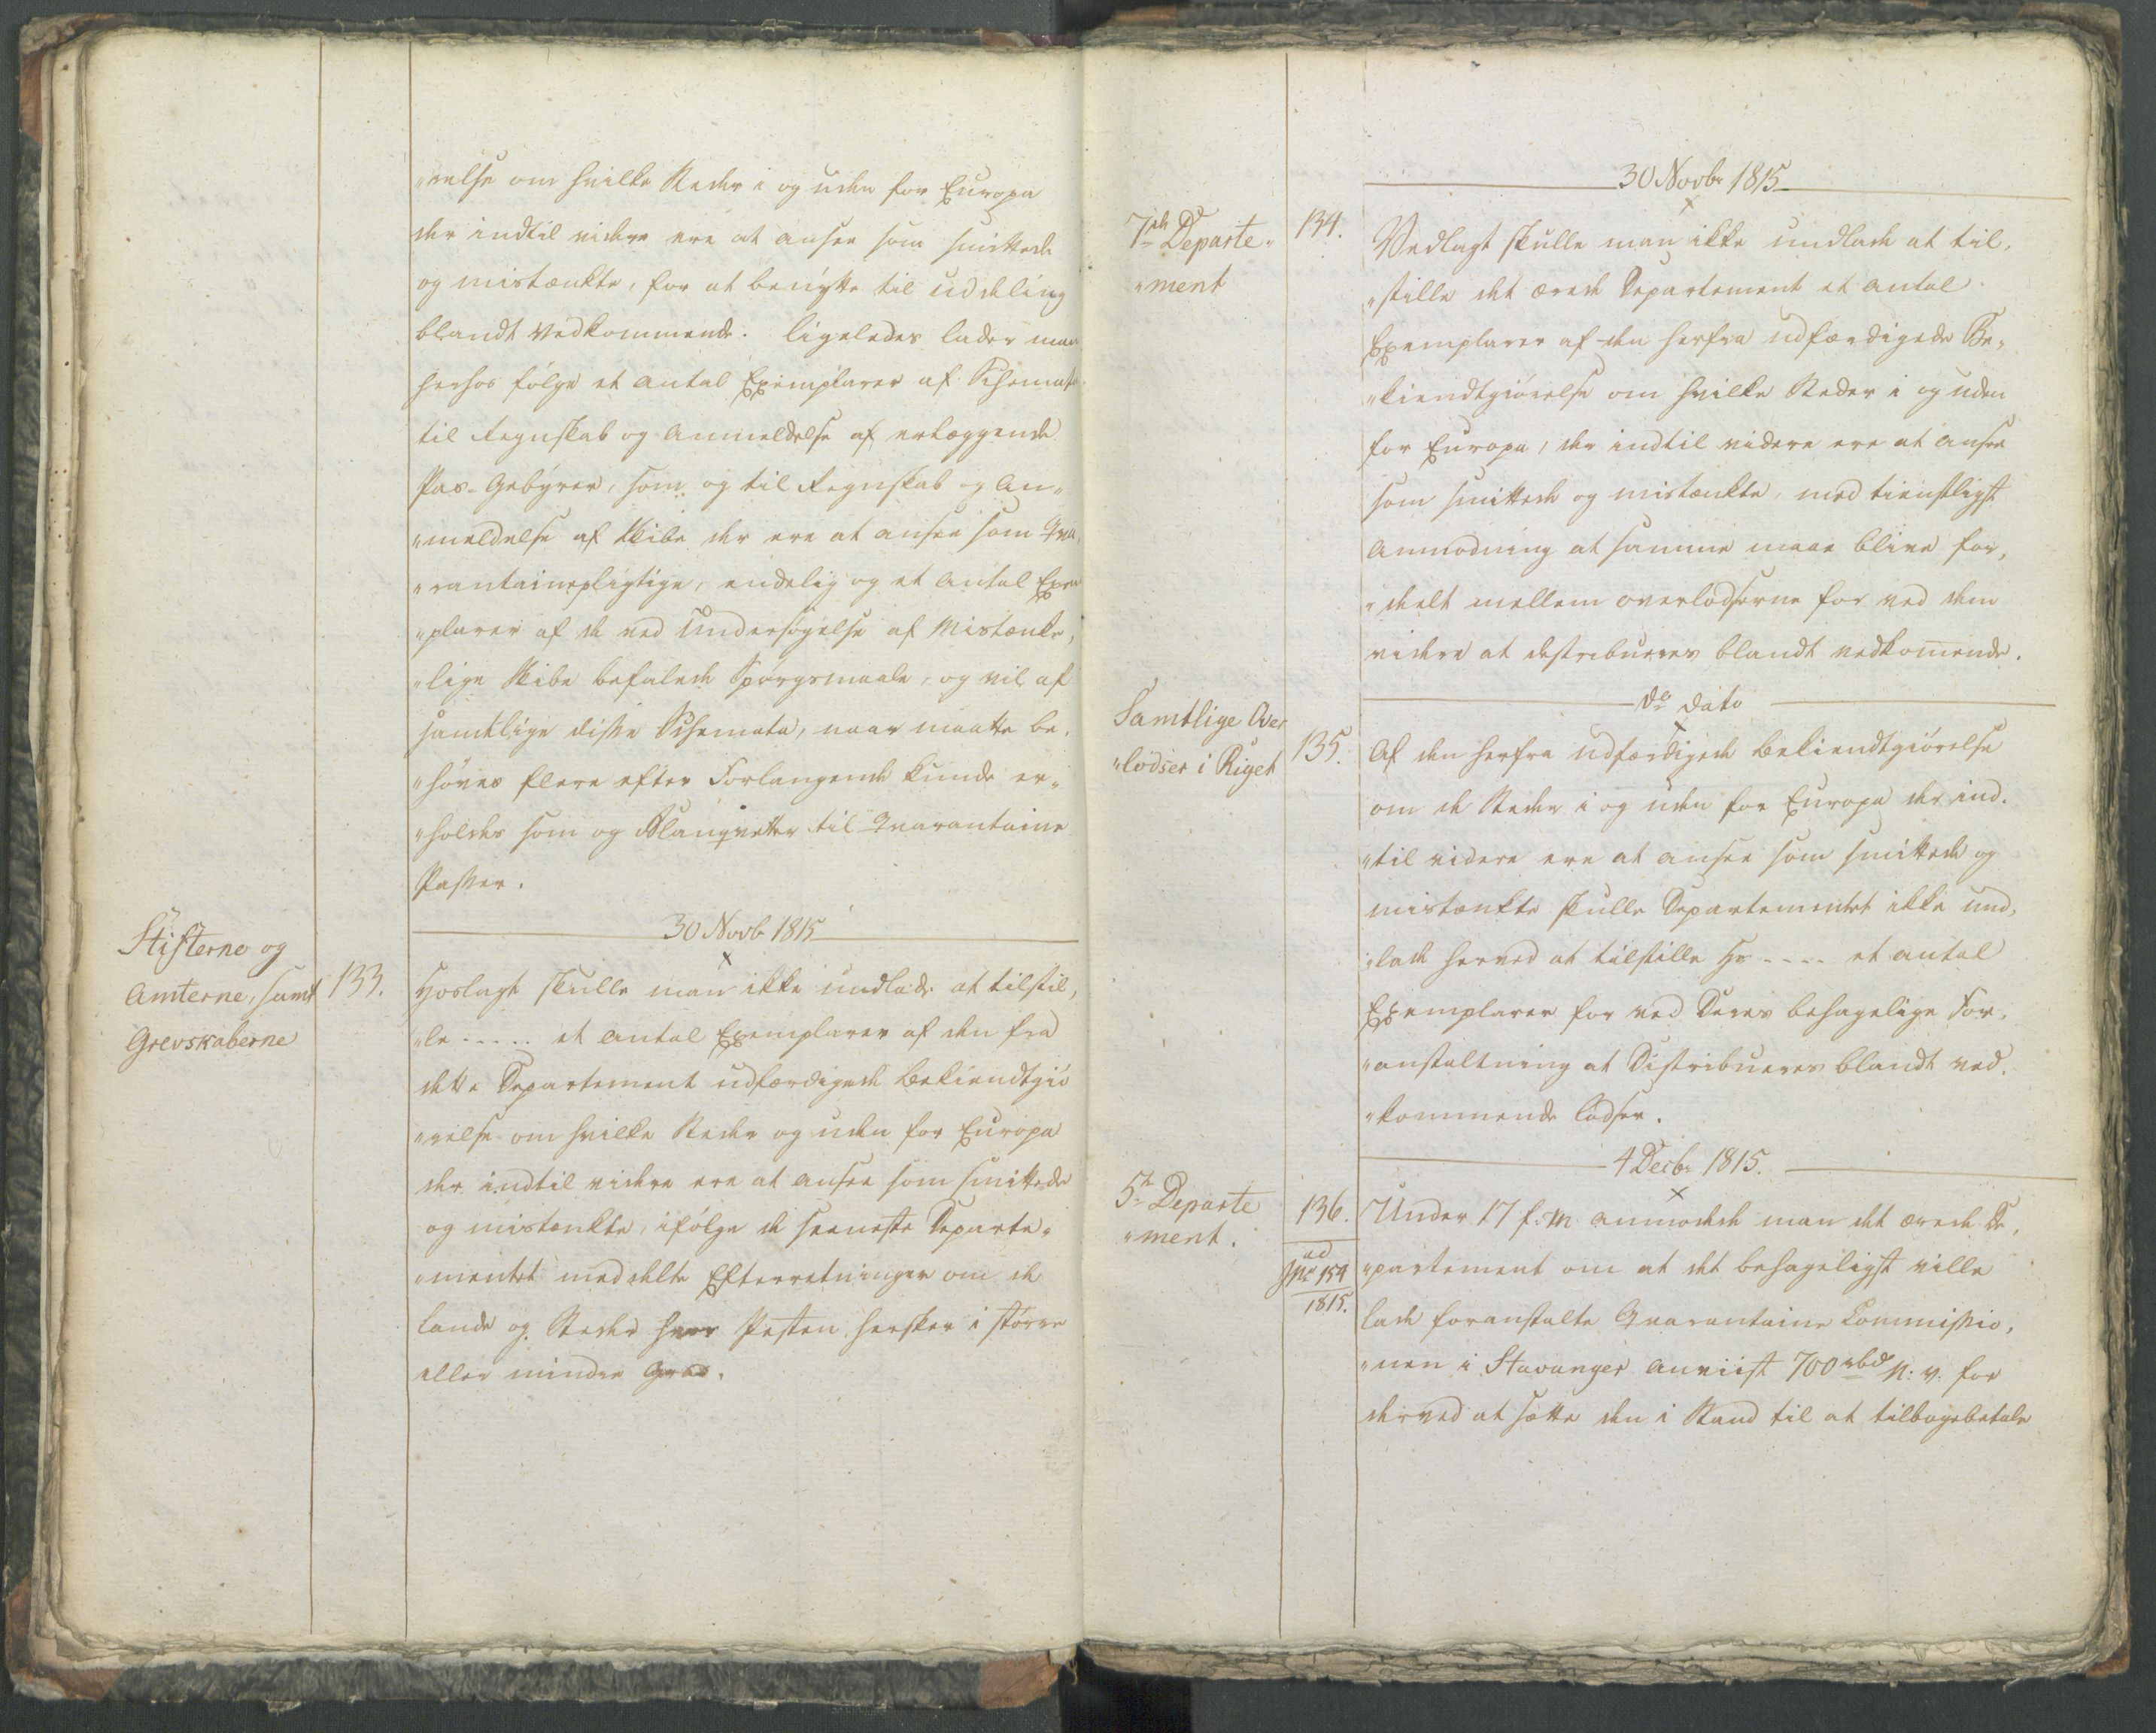 "relse om hvilke Steder i og uden for Europa
der indtil videre ere at ansee som smittede
og mistænkte, for at benytte til uddeling
blandt Vedkommende. ligeledes lader man
herhos følge et Antal Exemplarer af Schemata
til Regnskab og Anmeldelse af erlæggende
Pas-Gebyrer, som og til Regnskab og An„
„meldelse af Skibe der ere at ansee som Qva„
„rantainepligtige, endelig og et Antal Exem
„plarer af de ved Undersøgelse af Mistænke„
„lige Skibe befalede Spørgsmaale, og vil af
samtlige disse Schemata, naar maatte be„
„høves flere efter Forlangende kunde er„
„holdes som og Blanqvetter til Qvarantaine
Passer.
30 Novb 1815
Stifterne og
Amterne, samt
Grevskaberne
133.
Hoslagt skulle man ikke undlade at tilstil„
„le ..... et Antal Exemplarer af den fra
dette Departement udfærdigede Bekiendtgiö
„relse om hvilke Steder og uden for Europa
der indtil videre ere at ansee som smittede
og mistænkte, ifølge de seeneste Departe„
„mentet meddelte Efterretninger om de
Lande og Steder hvor Pesten hersker i större
eller mindre Grad.
30 Novbr 1815
7de Departe„
„ment
134.
Vedlagt skulle man ikke undlade at til„
„stille det ærede Departement et Antal
Exemplarer af den herfra udfærdigede Be„
„kiendtgiörelse om hvilke Steder i og uden
for Europa, der indtil videre ere at ansee
som smittede og mistænkte, med tienstligst
Anmodning at samme maae blive for„
„deelt mellem Overlodserne for ved dem
videre at destribueres blandt vedkommende.
do dato
Samtlige Over
„lodser i Riget
135.
Af den herfra udfærdigede Bekiendtgiörelse
om de Steder i og uden for Europa der ind„
„til videre ere at ansee som smittede og
mistænkte skulle Departementet ikke und„
„lade herved at tilstille Hr .... et Antal
Exemplarer for ved Deres behagelige For„
„anstaltning at Distribueres blandt ved„
„kommende Lodser.
4 Decbr 1815.
5te Departe
„ment.
136.
ad
JNr 154
1815.
Under 17 f: M. anmodede man det ærede De„
„partement om at det behageligst ville
lade foranstalte Qvarantaine Commissio„
„nen i Stavanger anviist 700 rbd N: V. for
derved at sætte den i Stand til at tilbagebetale